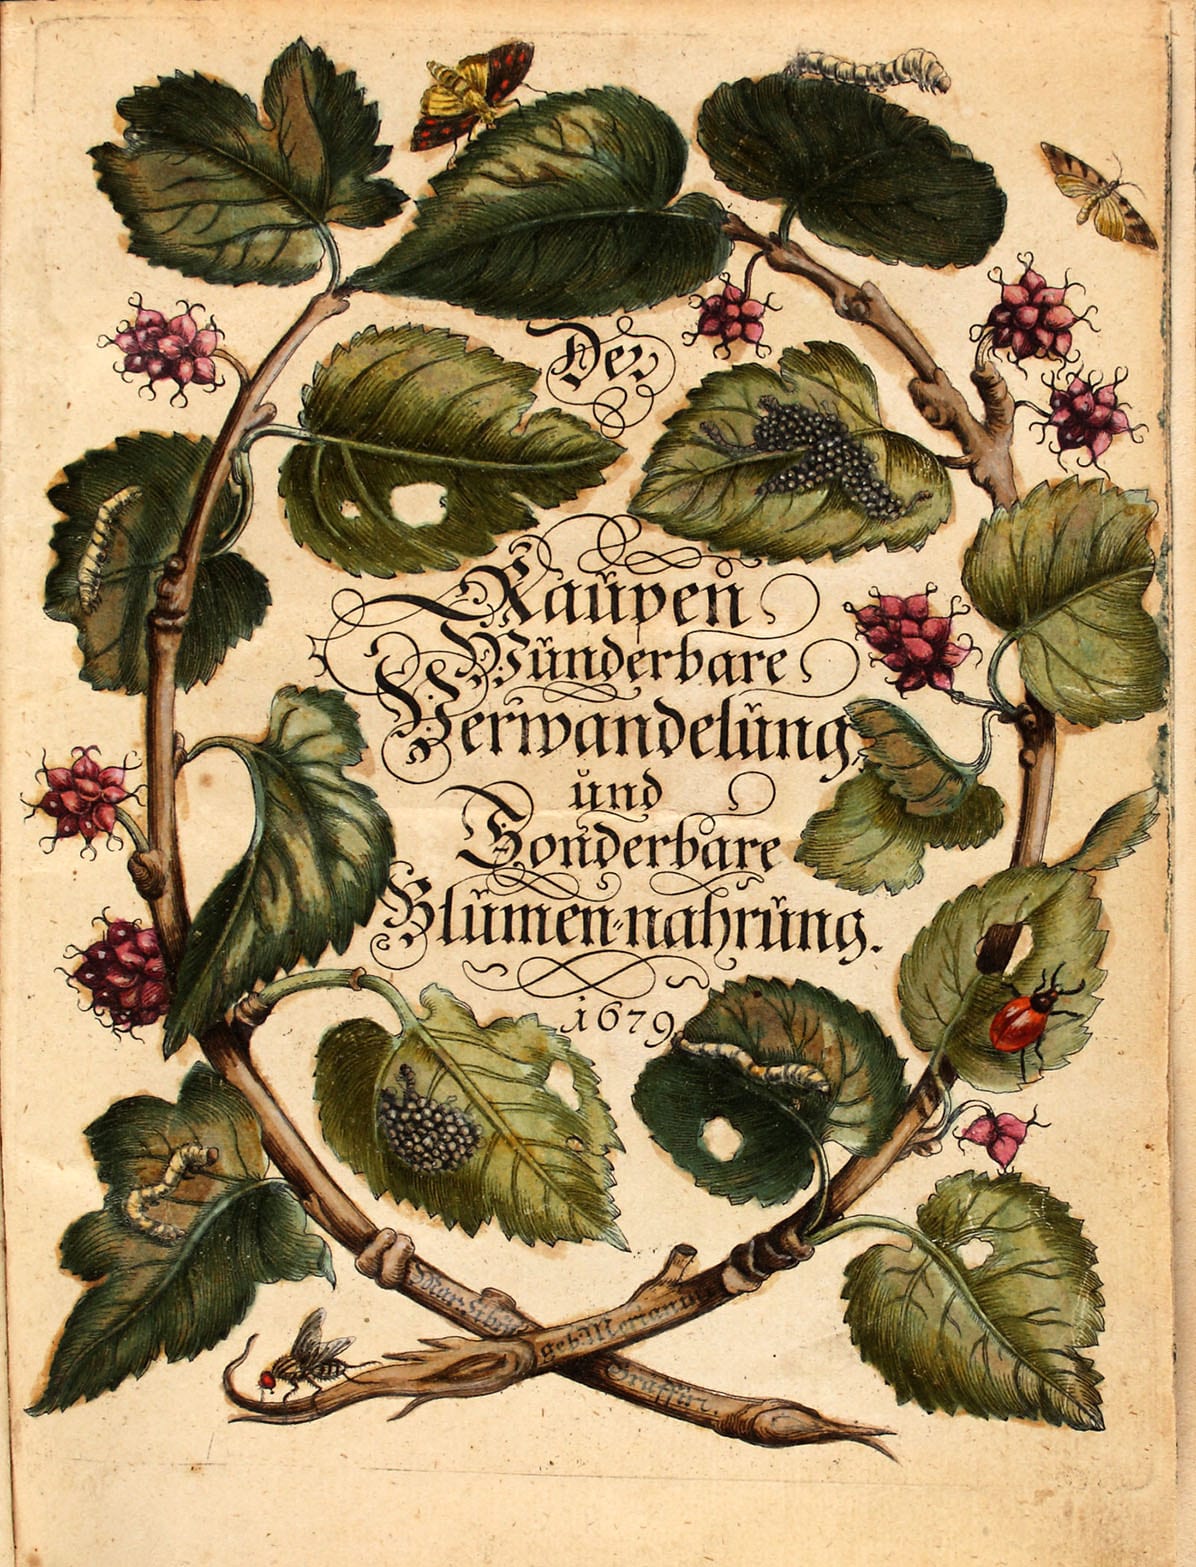 Der
Raŭpen
Wŭnderbare
Verwandelŭng,
ŭnd
Sonderbare
Blŭmen-nahrŭng.
1679.
geb. Merianin
Graffin